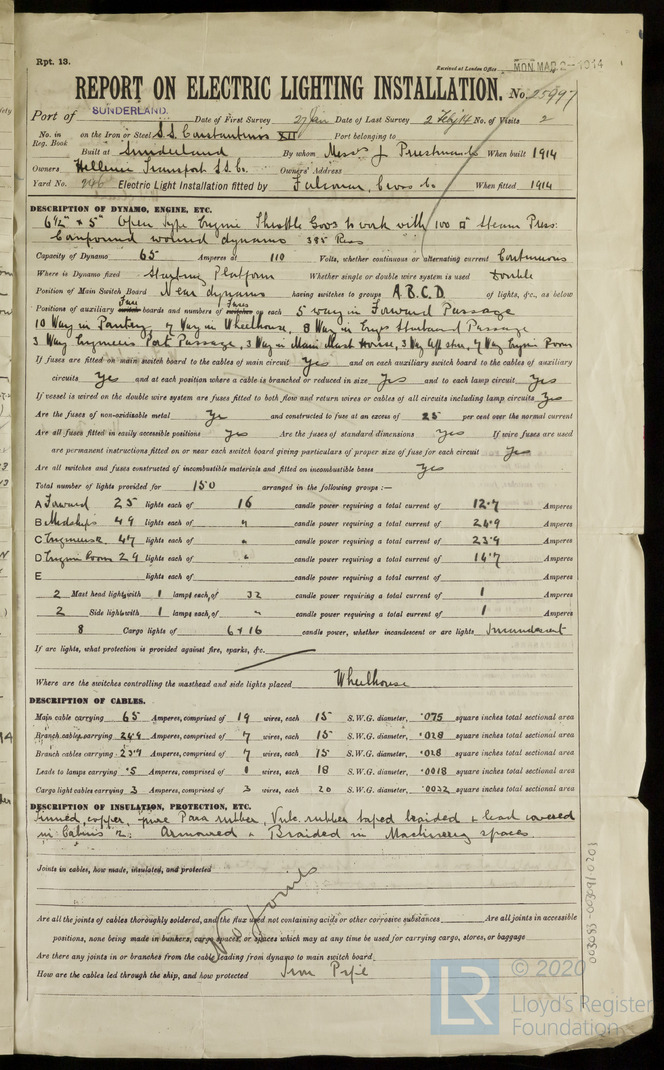 Rpt. 13.
Received at London Office MON. MAR 2 - 1914
REPORT ON ELECTRIC LIGHTING INSTALLATION. No. 25997
Port of SUNDERLAND. Date of First Survey 27 Jan Date of Last Survey 2 Feby 14 No. of Visits 2
No. in Reg. Book on the Iron or Steel S.S. Constantinos XII Port belonging to
Built at Sunderland By whom Messrs J Priestmans When built 1914
Owners Hellenic Transport S.S. Co. Owners' Address
Yard No. 246 Electric Light Installation fitted by Falconar, Cross & Co When fitted 1914
DESCRIPTION OF DYNAMO, ENGINE, ETC.
6½" x 5" Open Type Engine Throttle Gov to work with 100 Steam Press:
Compound wound dynamo 385 Revs
Capacity of Dynamo 65 Amperes at 110 Volts, whether continuous or alternating current Continuous
Where is Dynamo fixed Starting Platform Whether single or double wire system is used Double
Position of Main Switch Board Near dynamo having switches to groups A.B.C.D. of lights, &c., as below
Positions of auxiliary Fuse switch boards and numbers of Fuses switches on each 5 way in Forward Passage
10 Way in Pantry, 7 Way in Wheelhouse, 8 Way in Engrs Starboard Passage
3 Way Engineers Port Passage, 3 Way in Main Mast House, 3 Way aft, 7 Way Engine Room
If fuses are fitted on main switch board to the cables of main circuit Yes and on each auxiliary switch board to the cables of auxiliary
circuits Yes and at each position where a cable is branched or reduced in size Yes and to each lamp circuit Yes
If vessel is wired on the double wire system are fuses fitted to both flow and return wires or cables of all circuits including lamp circuits Yes
Are the fuses of non-oxidizable metal Yes and constructed to fuse at an excess of 25 per cent over the normal current
Are all fuses fitted in easily accessible positions Yes Are the fuses of standard dimensions Yes If wire fuses are used
are permanent instructions fitted on or near each switch board giving particulars of proper size of fuse for each circuit Yes
Are all switches and fuses constructed of incombustible materials and fitted on incombustible bases Yes
Total number of lights provided for 150 arranged in the following groups :—
A Forward 25 lights each of 16 candle power requiring a total current of 12.7 Amperes
B Midships 49 lights each of " candle power requiring a total current of 24.9 Amperes
C Engineers 47 lights each of " candle power requiring a total current of 23.9 Amperes
D Engine Room 29 lights each of " candle power requiring a total current of 14.7 Amperes
E lights each of candle power requiring a total current of Amperes
2 Mast head lights with 1 lamps each of 32 candle power requiring a total current of 1 Amperes
2 Side lights with 1 lamps each of " candle power requiring a total current of 1 Amperes
8 Cargo lights of 6 x 16 candle power, whether incandescent or arc lights Incandescent
If arc lights, what protection is provided against fire, sparks, &c.
Where are the switches controlling the masthead and side lights placed Wheelhouse
DESCRIPTION OF CABLES.
Main cable carrying 65 Amperes, comprised of 19 wires, each 15 S.W.G. diameter, .075 square inches total sectional area
Branch cables carrying 24.9 Amperes, comprised of 7 wires, each 15 S.W.G. diameter, .028 square inches total sectional area
Branch cables carrying 23.9 Amperes, comprised of 7 wires, each 15 S.W.G. diameter, .028 square inches total sectional area
Leads to lamps carrying .5 Amperes, comprised of 1 wires, each 18 S.W.G. diameter, .0018 square inches total sectional area
Cargo light cables carrying 3 Amperes, comprised of 3 wires, each 20 S.W.G. diameter, .0032 square inches total sectional area
DESCRIPTION OF INSULATION, PROTECTION, ETC.
Tinned, copper, pure Para rubber, Vulc. rubber taped braided & lead covered
in Cabins &: Armoured & Braided in Machinery spaces.
Joints in cables, how made, insulated, and protected
No Joints
Are all the joints of cables thoroughly soldered, and the flux used not containing acids or other corrosive substances Are all joints in accessible
positions, none being made in bunkers, cargo spaces, or spaces which may at any time be used for carrying cargo, stores, or baggage
Are there any joints in or branches from the cable leading from dynamo to main switch board
How are the cables led through the ship, and how protected Iron Pipe
003083-003091-0203
LR © 2020
Lloyd's Register
Foundation